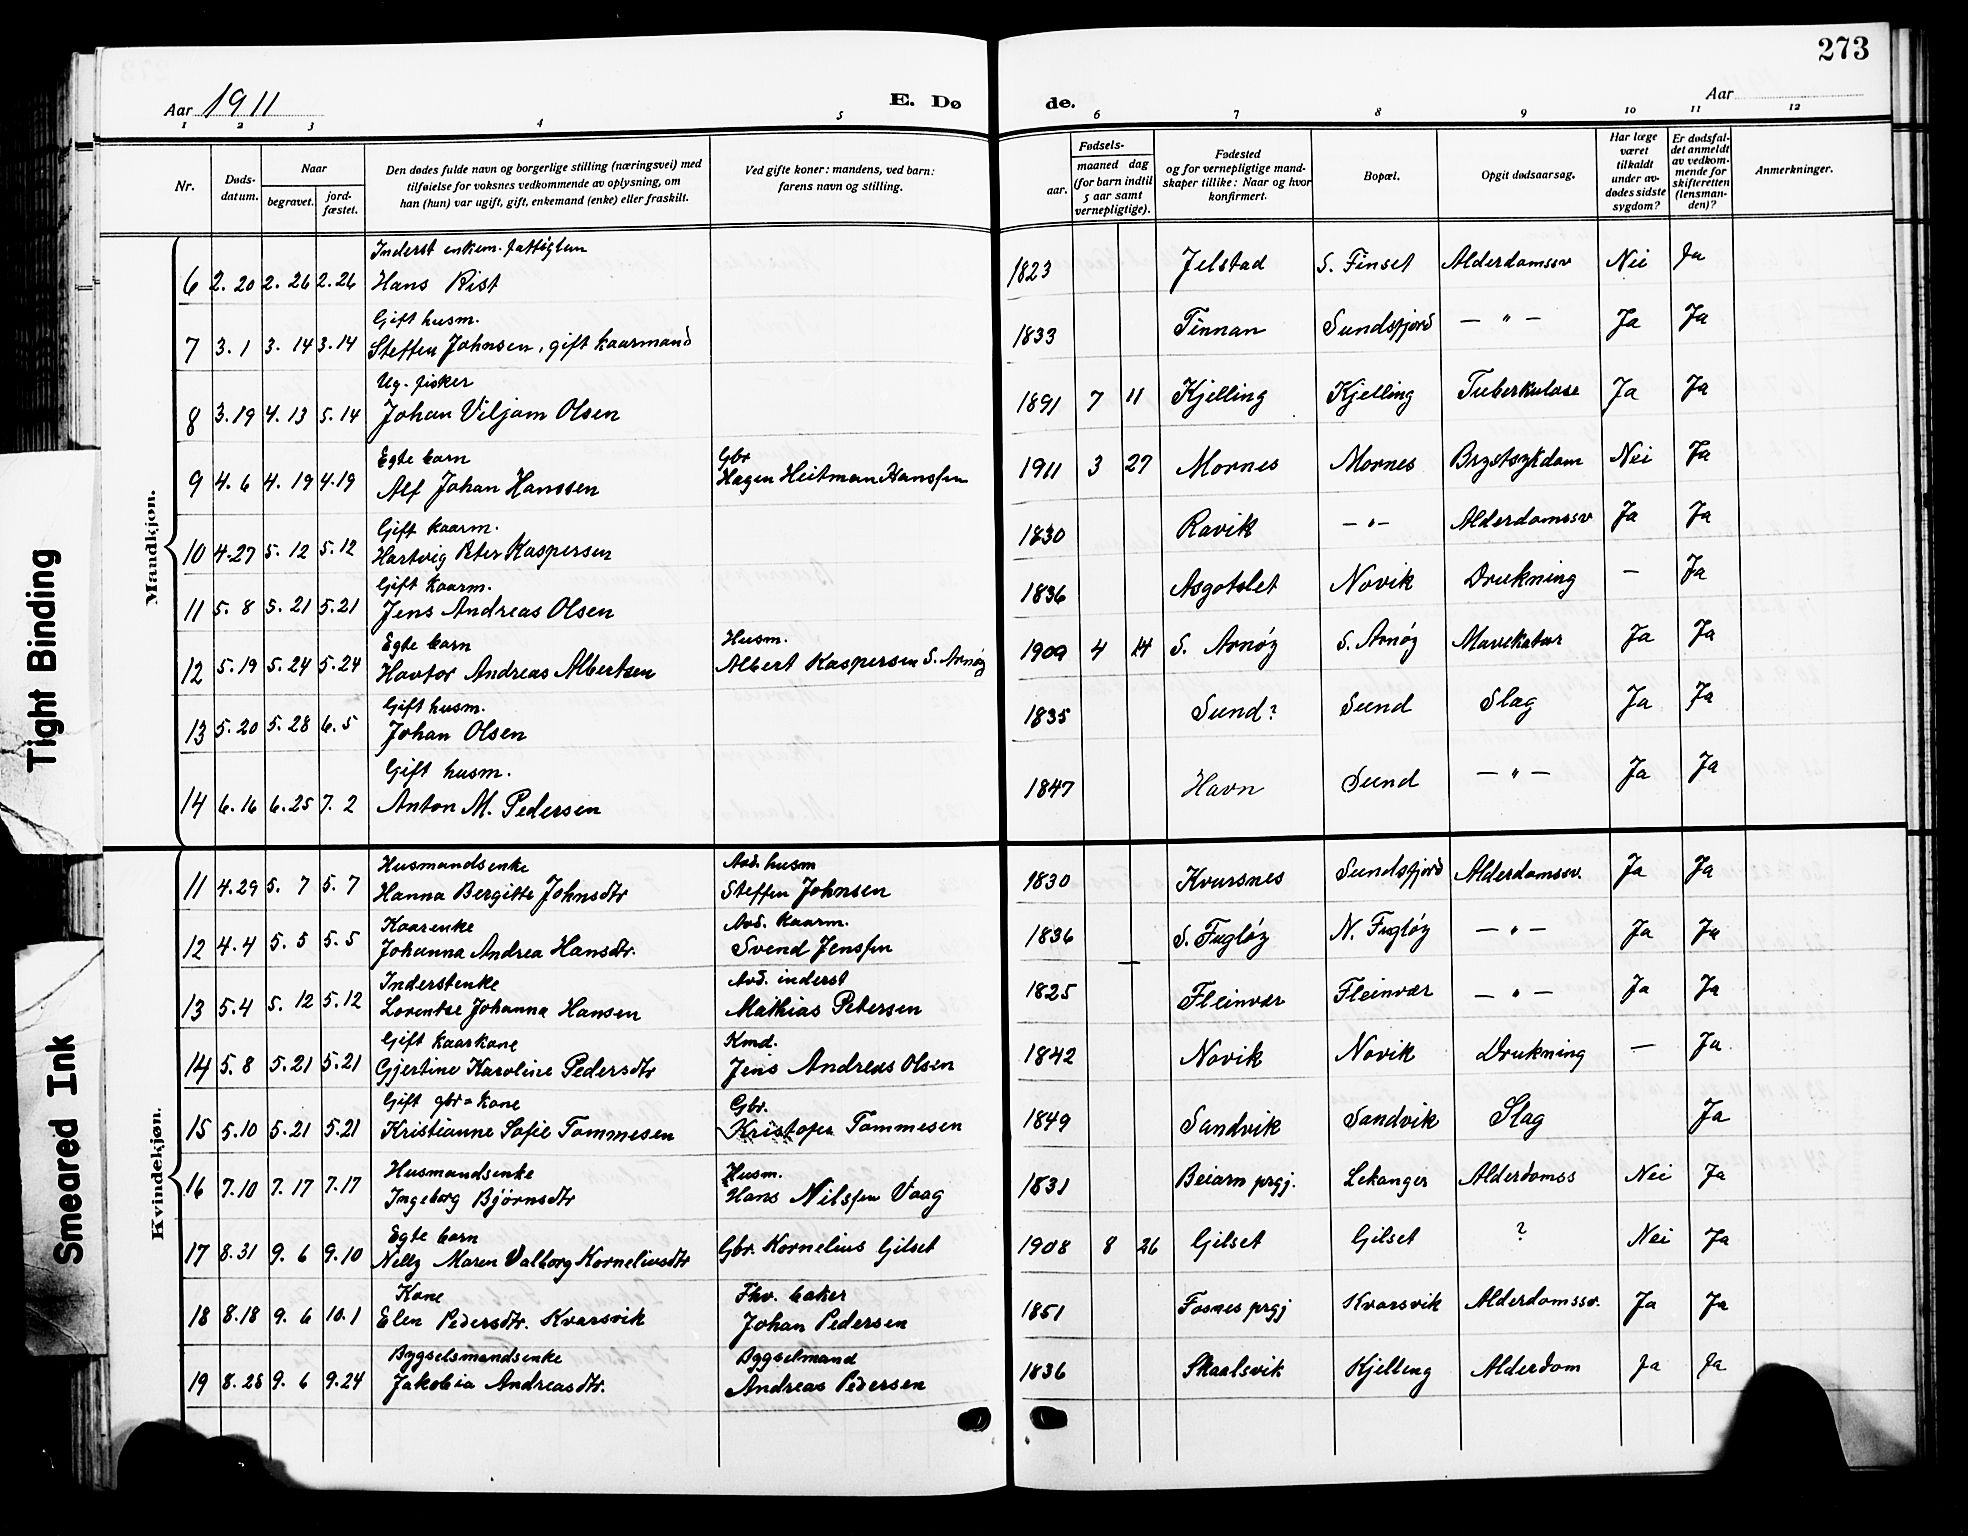 273
Aar 1911
E. Dø
de.
Aar
1 2 3 4 5 6 7 8 9 10 11 12
Nr.
Døds-
datum.
Naar
begravet.
jord-
fæstet.
Den dødes fulde navn og borgerlige stilling (næringsvei) med
tilføielse for voksnes vedkommende av oplysning, om
han (hun) var ugift, gift, enkemand (enke) eller fraskilt.
Ved gifte koner: mandens, ved barn:
farens navn og stilling.
Fødsels-
aar.
maaned dag
(for barn indtil
5 aar samt
vernepligtige).
Fødested
og for vernepligtige mand-
skaper tillike: Naar og hvor
konfirmert.
Bopæl.
Opgit dødsaarsag.
Har læge
været
tilkaldt
under av-
dødes sidste
sygdom?
Er dødsfal-
det anmeldt
av vedkom-
mende for
skifteretten
(lensman-
den)?
Anmerkninger.
Mandkjøn.
Inderst enkem. fattiglem
6 2. 20 2. 26 2.26 Hans Rist 1823 Jelstad S. Finset Alderdomssv Nei Ja
Gift husm.
7 3. 1 3. 14 3.14 Steffen Johnsen, gift kaarmand 1833 Tinnan Sundsfjord — " — Ja Ja
Ug. fisker
8 3.19 4. 13 5.14 Johan Viljam Olsen 1891 7 11 Kjelling Kjelling Tuberkulose Ja Ja
Egte barn Gbr
9 4. 6 4. 19 4.19 Alf Johan Hanssen Hagen Heitman Hanssen 1911 3 27 Mornes Mornes Brystsykdom Nei Ja
Gift kaarm.
10 4.27 5. 12 5.12 Hartvig Peter Kaspersen 1830 Ravik — " — Alderdomssv Ja Ja
Gift kaarm.
11 5. 8 5. 21 5.21 Jens Andreas Olsen 1836 Asgotslet Novik Drukning — Ja
Egte barn Husm.
12 5.19 5.24 5.24 Havtor Andreas Albertsen Albert Kaspersen S. Arnøy 1909 4 14 S. Arnøy S. Arnøy Mavekatar Ja Ja
Gift husm.
13 5.20 5.28 6. 5 Johan Olsen 1835 Sund? Sund Slag Ja Ja
Gift husm.
14 6.16 6.25 7. 2 Anton M. Pedersen 1847 Havn Sund — " — Ja Ja
Kvindekjøn.
Husmandsenke Avd. husm
11 4.29 5. 7 5. 7 Hanna Bergitte Johnsdtr Steffen Johnsen 1830 Kvarsnes Sundsfjord Alderdomssv. Ja Ja
Kaarenke Avd. kaarm.
12 4.4 5. 5 5. 5 Johanna Andrea Hansdtr. Svend Jenssen 1836 S. Fugløy N. Fugløy — " — Ja Ja
Inderstenke Avd. inderst
13 5.4 5. 12 5.12 Lorentse Johanna Hansen Mathias Petersen 1825 Fleinvær Fleinvær — " — Ja Ja
Gift kaarkone Kmd.
14 5.8 5.21 5.21 Gjertine Karoline Pedersdtr Jens Andreas Olsen 1842 Novik Novik Drukning — Ja
Gift gbr-kone Gbr.
15 5.10 5.21 5.21 Kristianne Sofie Tommesen Kristofer Tommesen 1849 Sandvik Sandvik Slag Ja
Husmandsenke Husm.
16 7.10 7.17 7.17 Ingeborg Bjørnsdtr Hans Nilssen Vaag 1831 Beiarn prgj. Lekanger Alderdomss Nei Ja
Egte barn
17 8.31 9. 6 9.10 Nelly Maren Valborg Korneliusdtr Gbr. Kornelius Gilset 1908 8 26 Gilset Gilset ? Nei Ja
Kone Fhv. baker
18 8.18 9. 6 10.1 Elen Pedersdtr. Kvarsvik Johan Pedersen 1851 Fosnes prgj Kvarsvik Alderdomssv. Ja Ja
Bygselsmandsenke Bygselmand
19 8.28 9. 6 9.24 Jakobia Andreasdtr. Andreas Pedersen 1836 Skaalsvik Kjelling Alderdom Ja Ja
Tight Binding
Smeared Ink